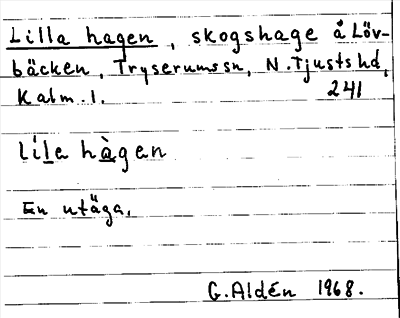 Lilla hagen, skogshage å Löv-
bäcken, Tryserumssn, N.Tjusts hd,
Kalm. l. 241
líle hàgen
En utäga.
G. Aldén 1968.